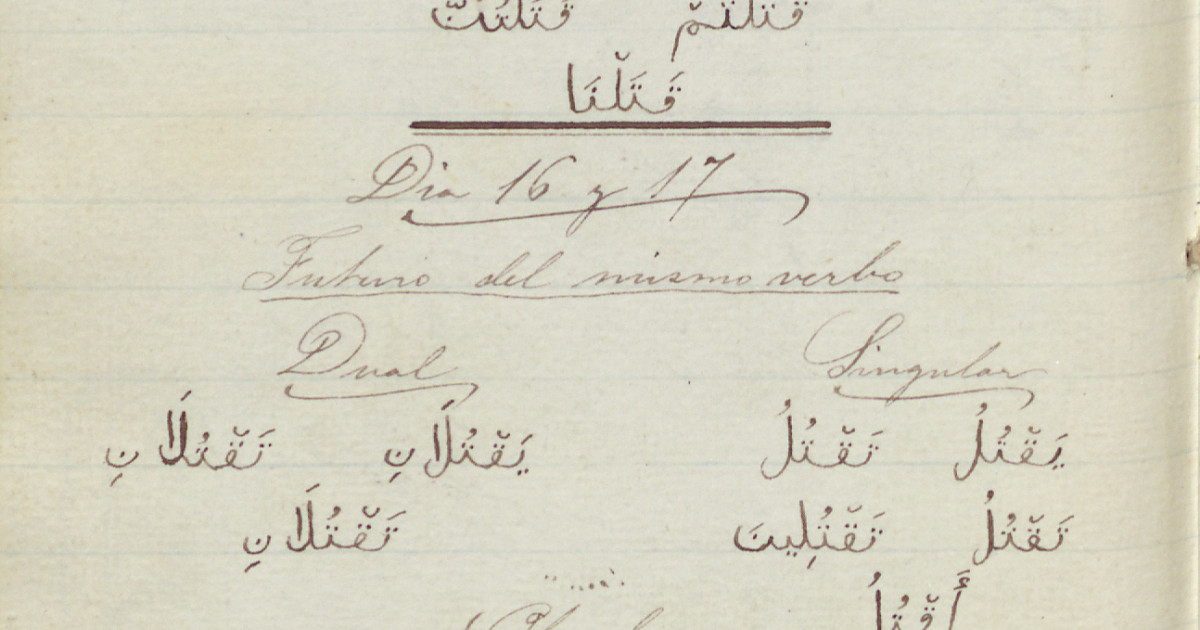 قَتَلْتُمْ قَتَلْتُنَّ
قَتَلْنَا
Dia 16 y 17
Futuro del mismo verbo
Dual Singular
يَقْتُلُ تَقْتُلُ يَقْتُلَانِ تَقْتُلَانِ
تَقْتُلُ تَقْتُلِينَ تَقْتُلَانِ
أَقْتُلُ